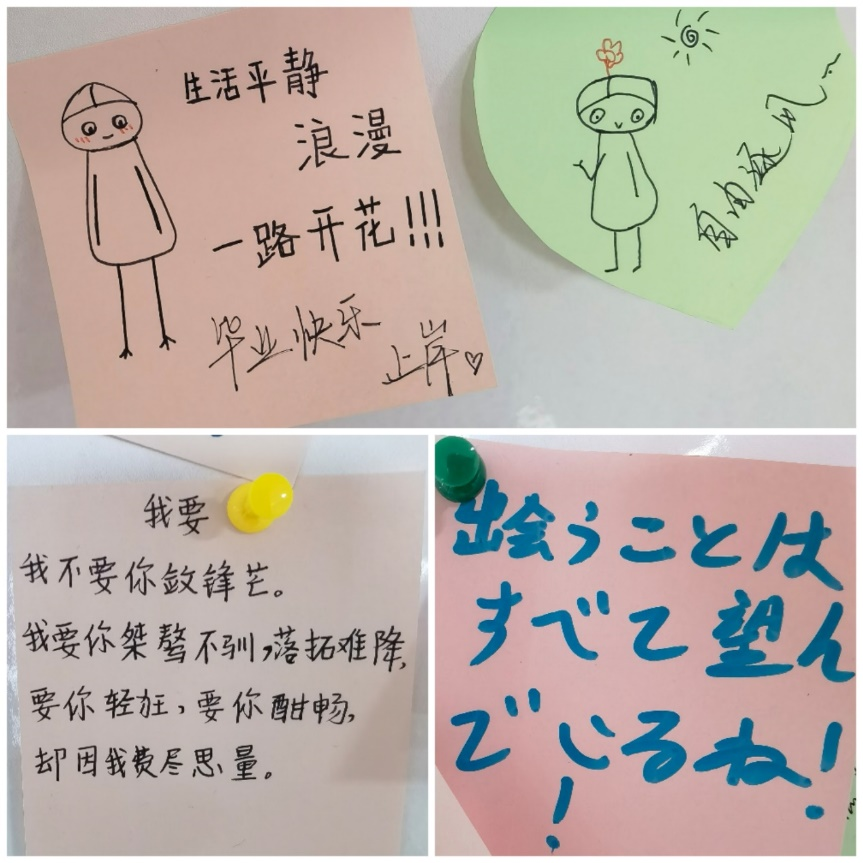 生活平静
浪漫
一路开花!!!
毕业快乐
上岸♡
自由
风
我要
我不要你敛锋芒。
我要你桀骜不驯,落拓难降,
要你轻狂,要你酣畅,
却因我费尽思量。
出会うことは
すべて望ん
でいるね!
!